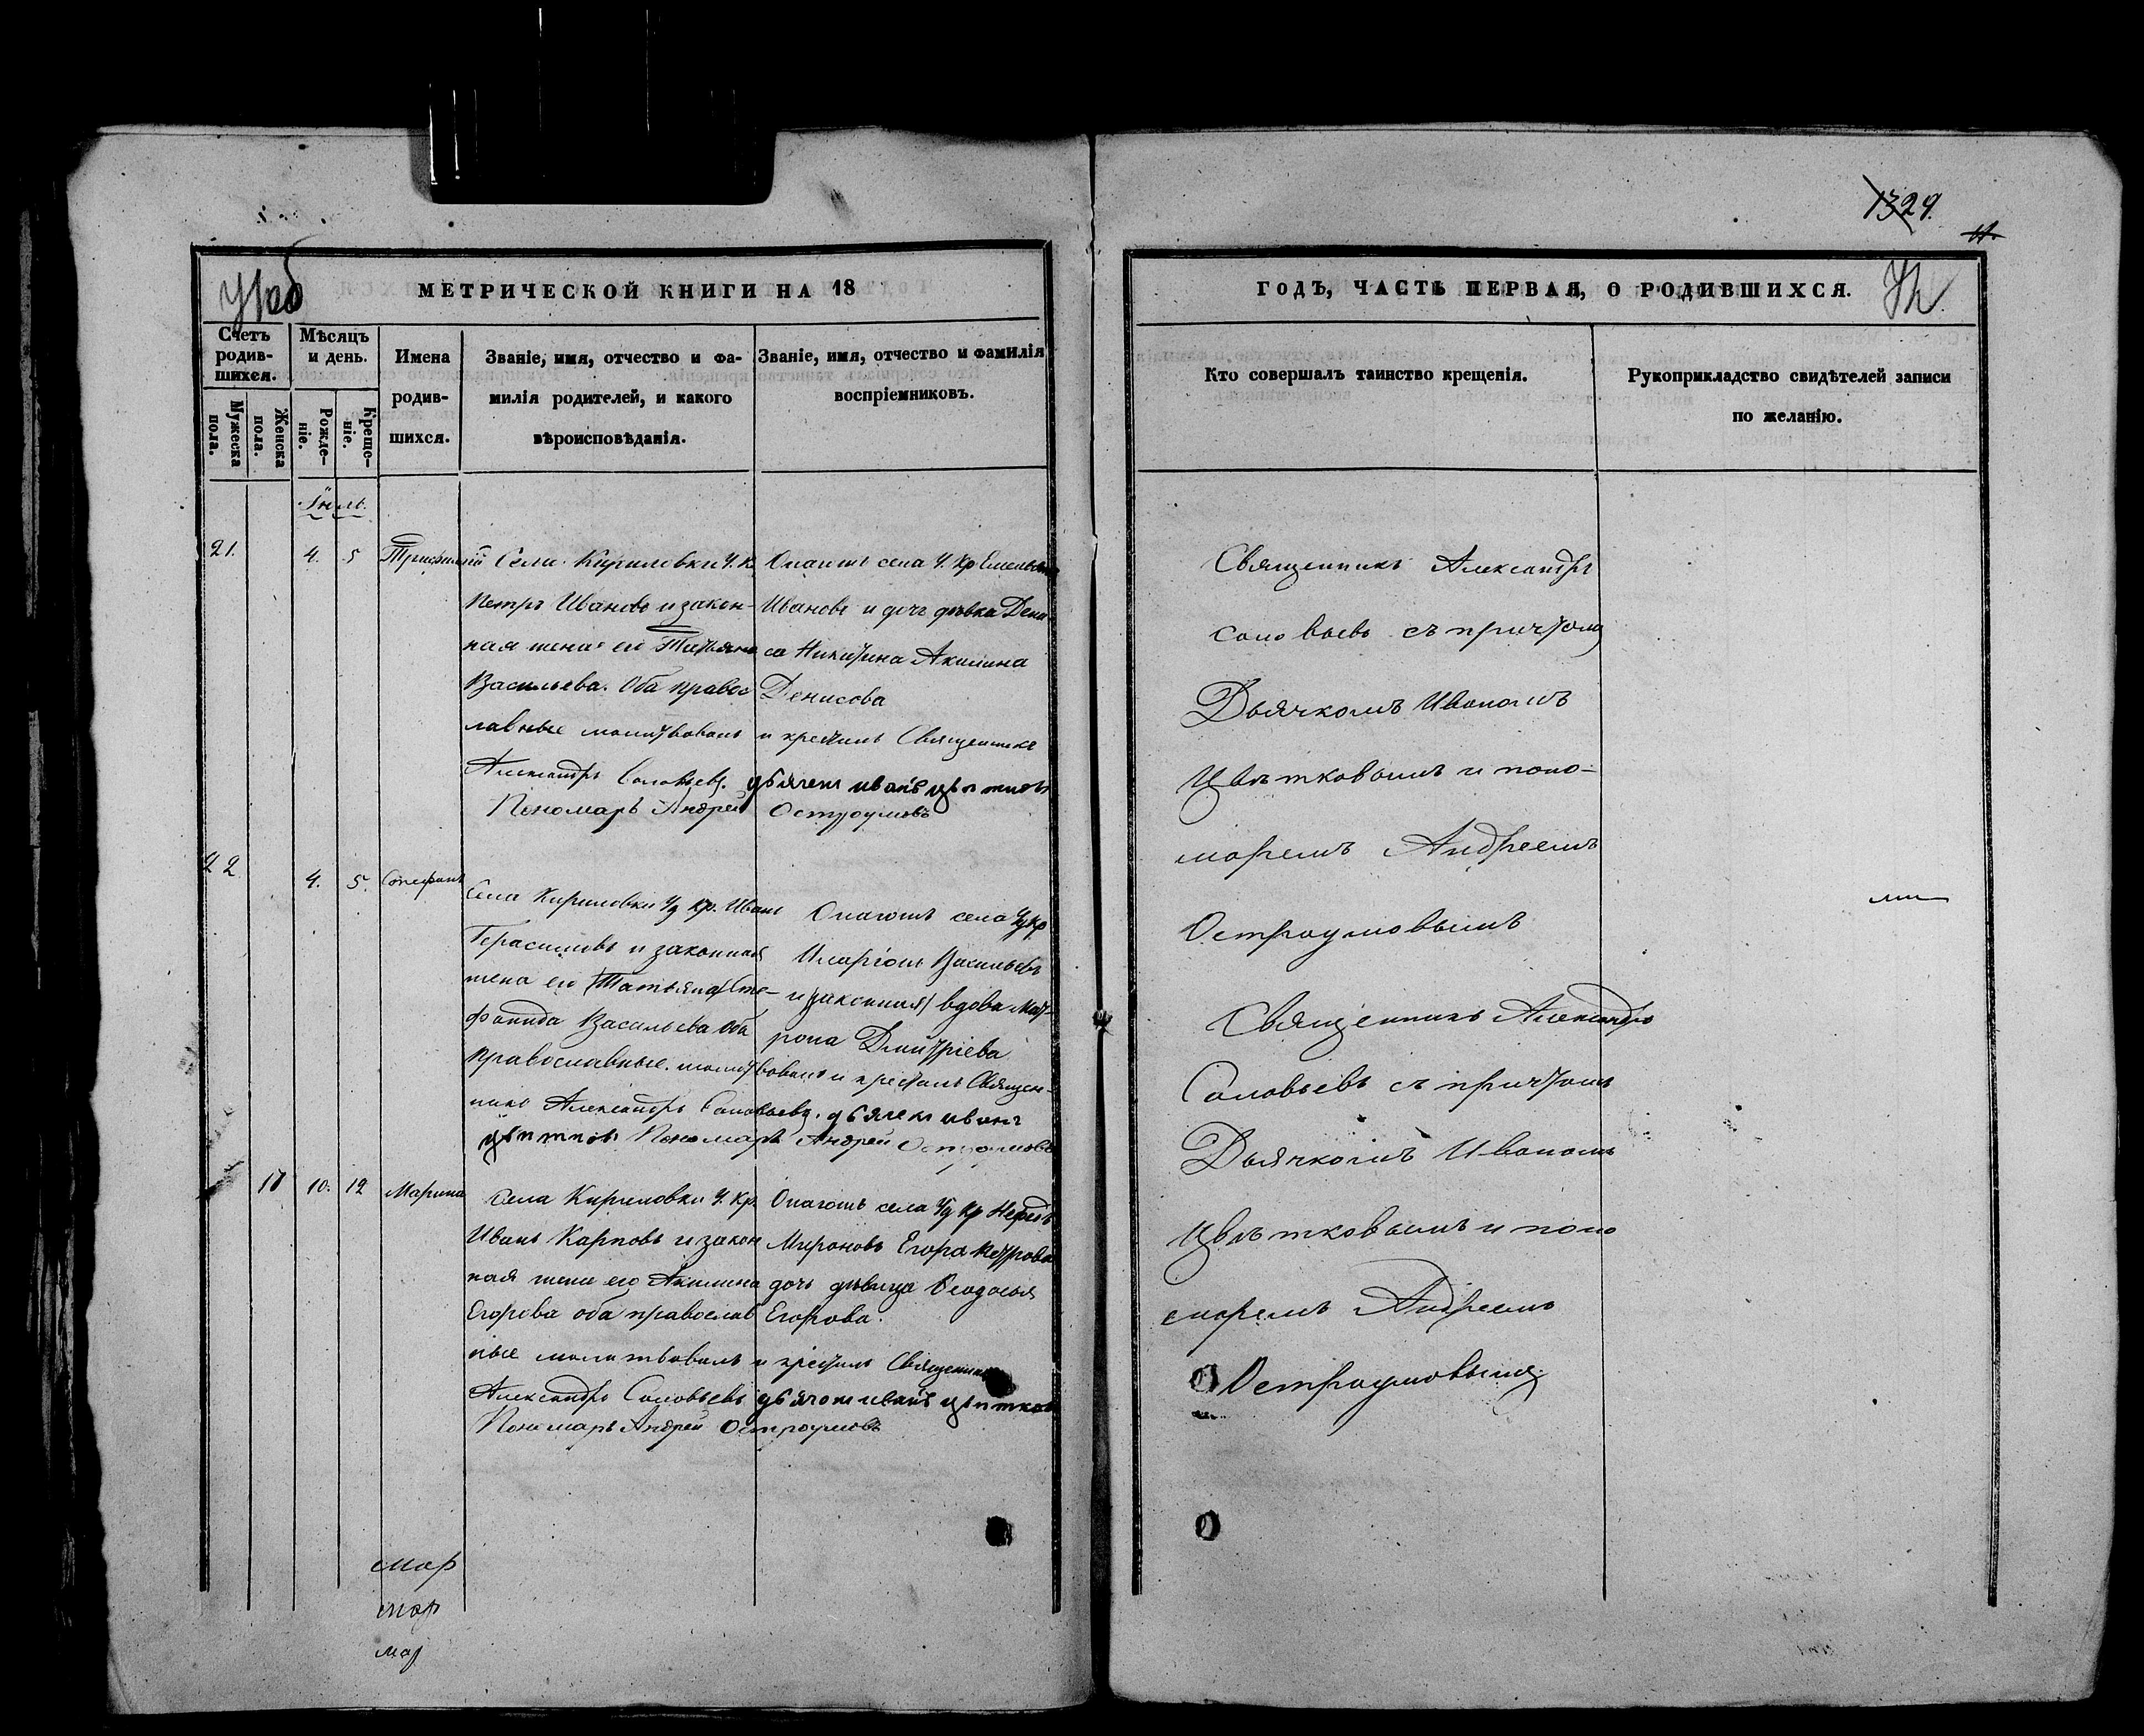 1329.
11.
МЕТРИЧЕСКОЙ КНИГИ НА 18
Счетъ родив-шихся.
Мужеска пола.
Женска пола.
Мѣсяцъ и день.
Рожде-ніе.
Креще-ніе.
Имена родив-шихся.
Званіе, имя, отчество и фа-
милія родителей, и какого
вѣроисповѣданія.
Званіе, имя, отчество и фамилія
воспріемниковъ.
Іюль.
21. 4. 5 Трифилій
Села Кириловки У. К.
Петръ Ивановъ и закон-
ная жена его Татьяна
Васильева. Оба правос
лавные молитвовалъ и крестилъ Священникъ
Александръ Соловьевъ. дьячекъ иванъ цветковъ
Пономарь Андрей Остроумовъ
Онагожъ села У. Кр Емельянъ
Ивановъ и дочь дѣвка Дени
са Никитина Акилина
Денисова
22 4. 5. Стефанъ
Села Кириловки Уд Кр. Иванъ
Герасимовъ и законная
жена его (Татьяна) Сте-
фанида Васильева Оба
православные. молитвовалъ и крестилъ Священ-
никъ Александръ Соловьевъ. дьячекъ иванъ
цветковъ Пономарь Андрей Остроумовъ
Онагожъ села Уд Кр
Иларіонъ Васильевъ
и (законная) вдова Мат-
рона Дмитріева
11 10. 12 Марина
Села Кириловки У. Кр.
Иванъ Карповъ и закон
ная жена его Акилина
Егорова оба православ
ные молитвовалъ и крестилъ Священникъ
Александръ Соловьевъ дьячокъ иванъ цветковъ
Пономарь Андрей Остроумовъ
Онагожъ села Уд Кр
Мироновъ Егора Петрова
дочь дѣвица Ѳеодосья
Егорова.
мар
мар
мар
ГОДЪ, ЧАСТЬ ПЕРВАЯ, О РОДИВШИХСЯ.
Кто совершалъ таинство крещенія.
Рукоприкладство свидѣтелей записи
по желанію.
Священникъ Александръ
Соловьевъ съ причтомъ
Дьячкомъ Иваномъ
Цвѣтковымъ и поно-
моремъ Андреемъ
Остроумовымъ
Священникъ Александръ
Соловьевъ съ причтомъ
Дьячкомъ Иваномъ
Цвѣтковымъ и поно
моремъ Андреемъ
Остроумовымъ